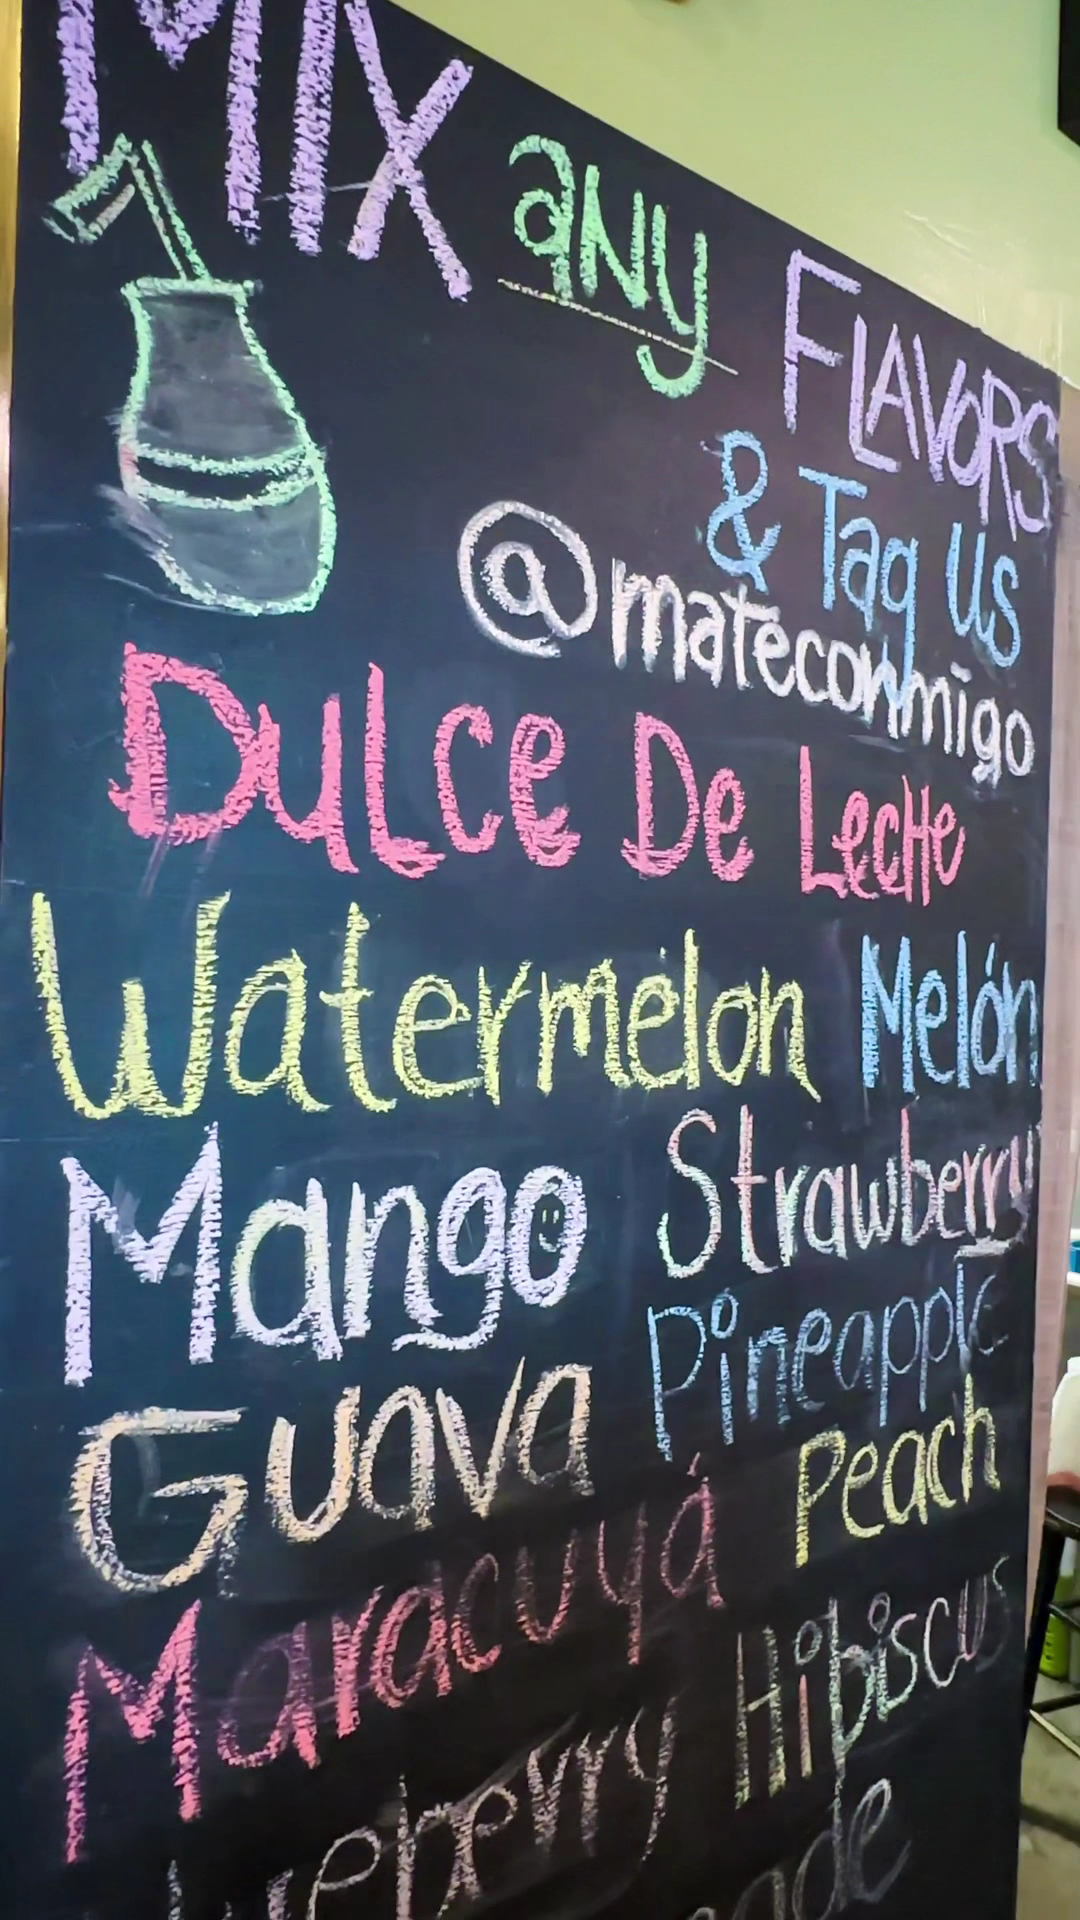 MIX any FLAVORS
& Tag Us
@mateconmigo
Dulce De Leche
Watermelon Melón
Mango Strawberry
Guava Pineapple
Peach
Maracuyá
Hibiscus